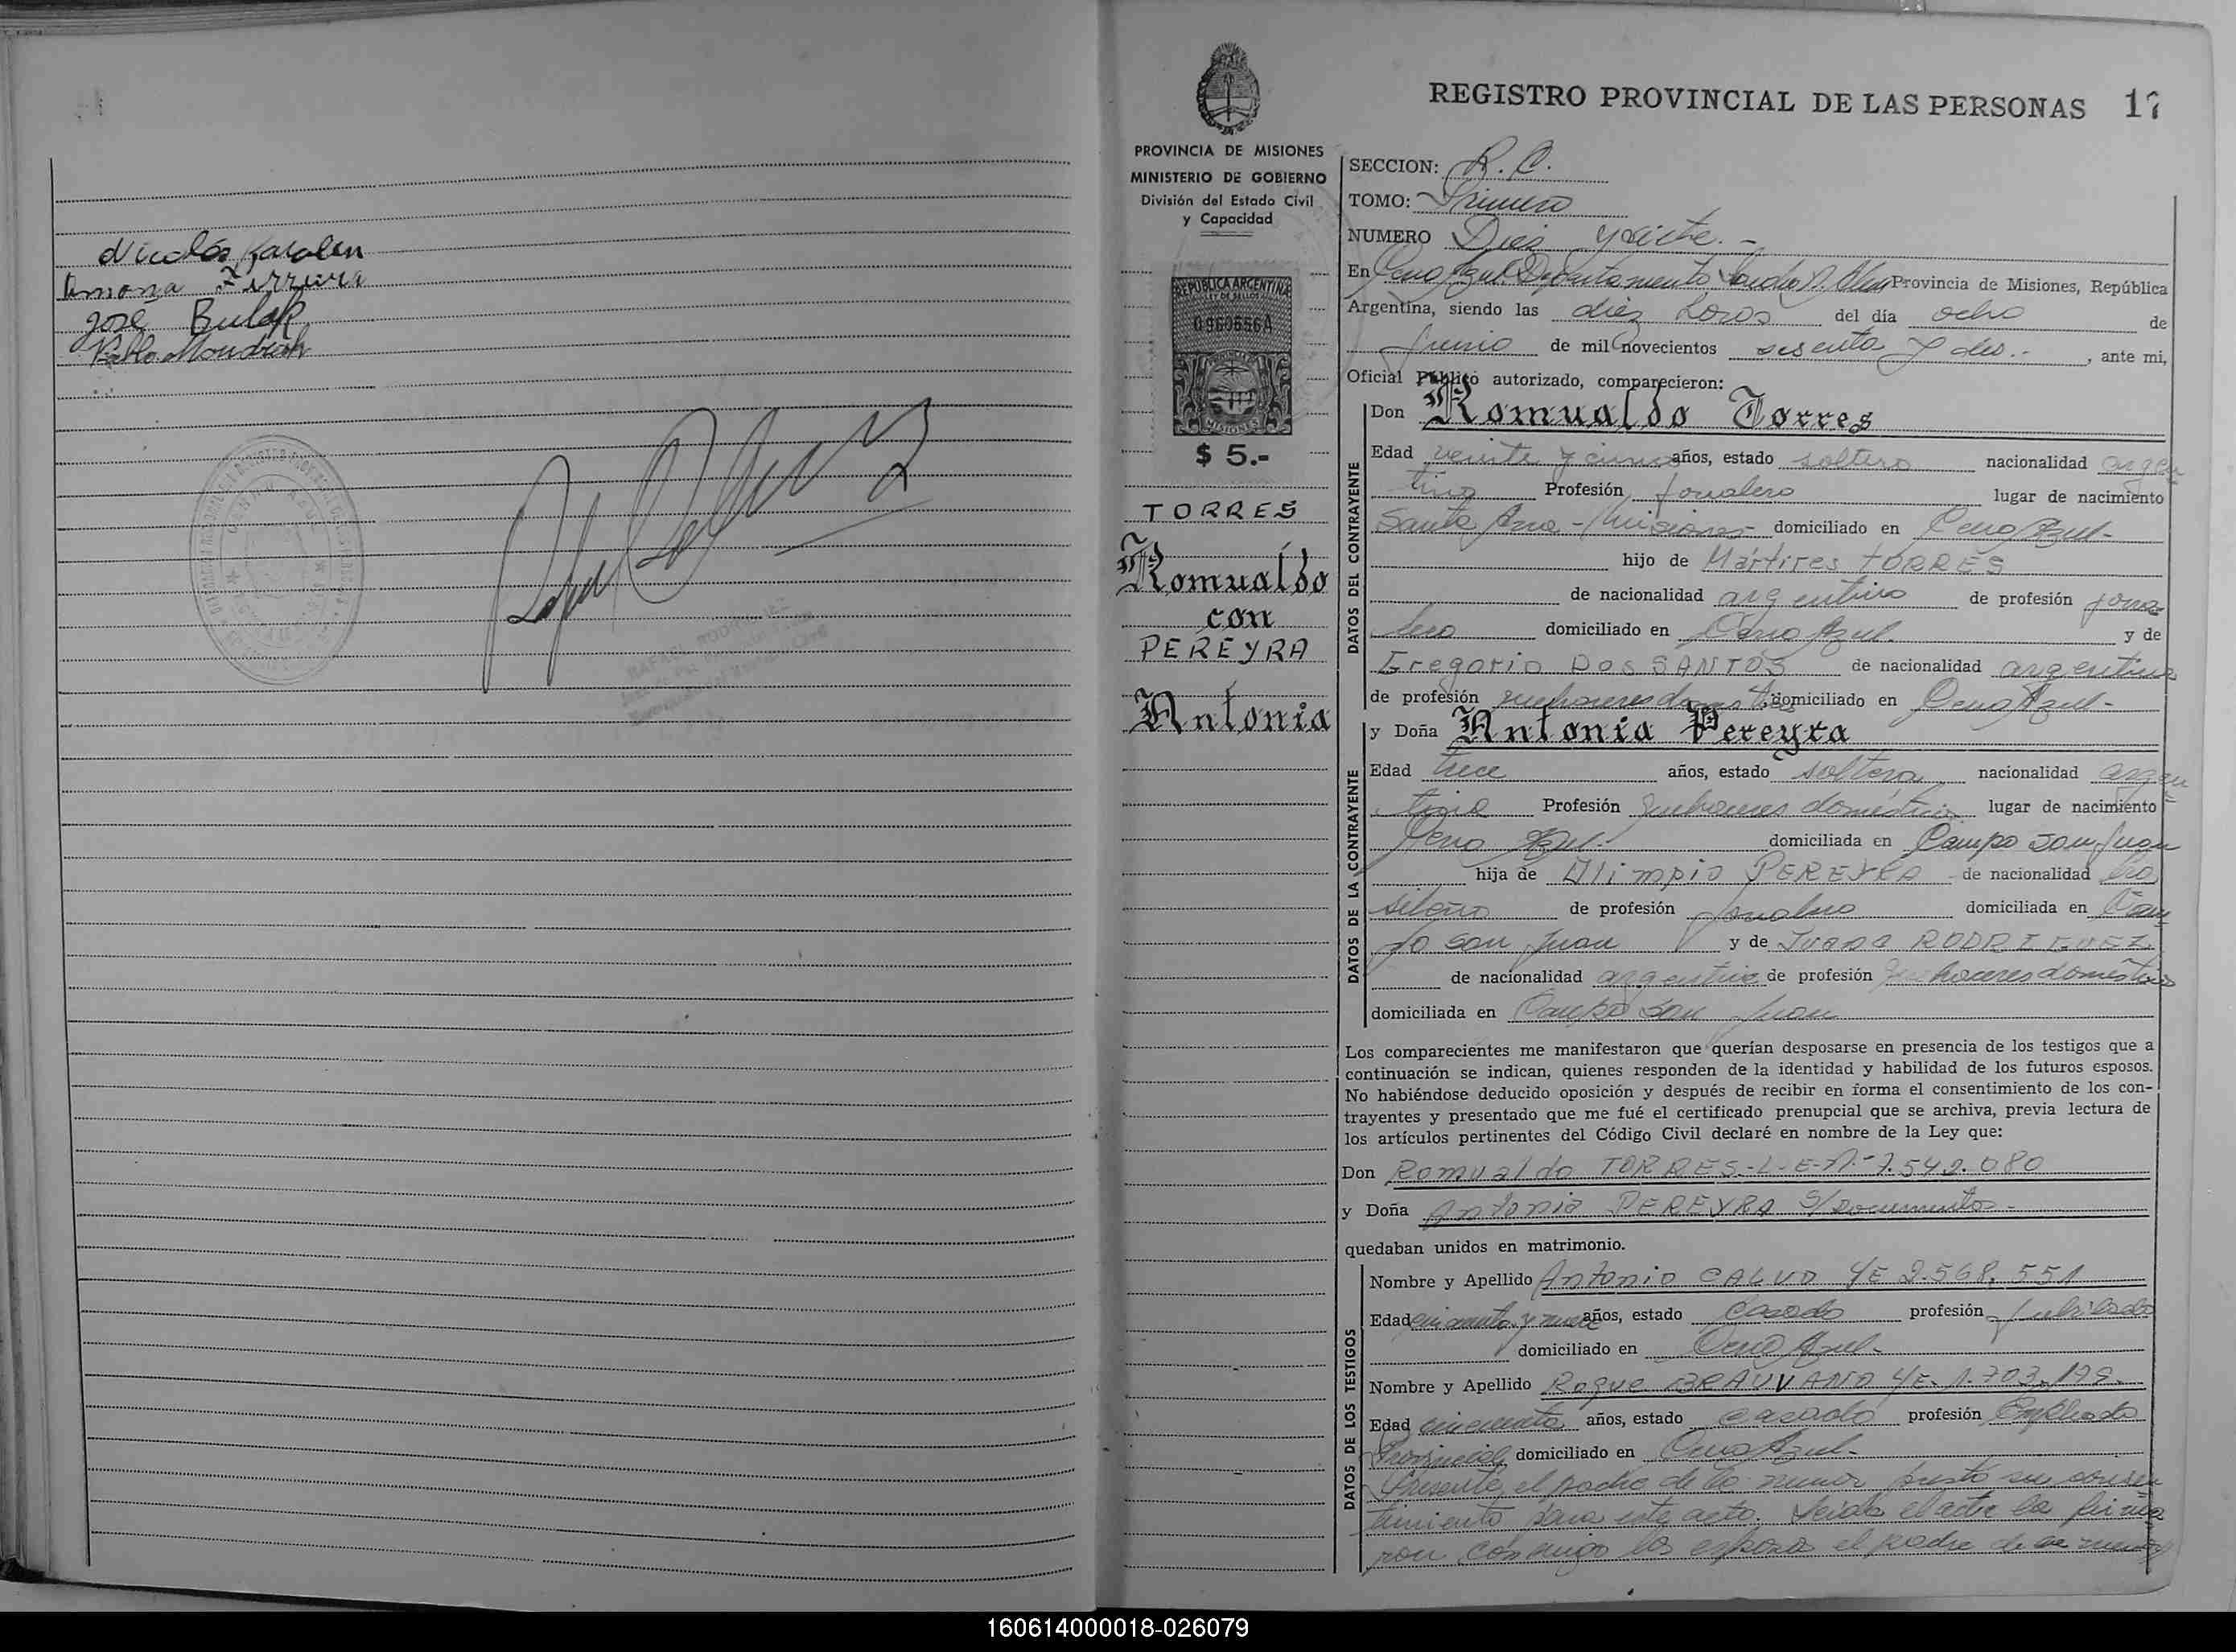 Nicolás Karalen
Ferreira
José Bulak
Pablo
REGISTRO PROVINCIAL DE LAS PERSONAS 17
PROVINCIA DE MISIONES
MINISTERIO DE GOBIERNO
División del Estado Civil
y Capacidad
REPUBLICA ARGENTINA
LEY DE SELLOS
0960656A
MISIONES
$ 5.-
TORRES
Romualdo
con
PEREYRA
Antonia
SECCION: R. C.
TOMO: Primero
NUMERO Diez y siete.-
En Cerro Azul Departamento Leandro N. Alem Provincia de Misiones, República
Argentina, siendo las diez horas del día ocho de
Junio de mil novecientos sesenta y dos.- , ante mi,
Oficial Público autorizado, comparecieron:
DATOS DEL CONTRAYENTE
Don Romualdo Torres
Edad veinte y cinco años, estado soltero nacionalidad argen
tino Profesión Jornalero lugar de nacimiento
Santa Ana - Misiones - domiciliado en Cerro Azul-
hijo de Mártires TORRES
de nacionalidad argentino de profesión jorna-
lero domiciliado en Cerro Azul. y de
Gregoria Dos SANTOS de nacionalidad argentina
de profesión quehaceres domésticos domiciliado en Cerro Azul-
DATOS DE LA CONTRAYENTE
y Doña Antonia Pereyra
Edad trece años, estado soltera nacionalidad argen
tina Profesión quehaceres domésticos lugar de nacimiento
Cerro Azul.- domiciliada en Campo San Juan
hija de Olimpio PEREYRA de nacionalidad bra
sileño de profesión Jornalero domiciliada en Cam
po San Juan y de Juana RODRIGUEZ
de nacionalidad argentina de profesión quehaceres domésticos
domiciliada en Campo San Juan
Los comparecientes me manifestaron que querían desposarse en presencia de los testigos que a
continuación se indican, quienes responden de la identidad y habilidad de los futuros esposos.
No habiéndose deducido oposición y después de recibir en forma el consentimiento de los con-
trayentes y presentado que me fué el certificado prenupcial que se archiva, previa lectura de
los artículos pertinentes del Código Civil declaré en nombre de la Ley que:
Don Romualdo TORRES.-L-E-N.-7.542.080
y Doña Antonia PEREYRA S/Documentos.-
quedaban unidos en matrimonio.
DATOS DE LOS TESTIGOS
Nombre y Apellido Antonio CALVO L/E 2.568.551
Edad cincuenta y nueve años, estado Casado profesión Jubilado
domiciliado en Cerro Azul-
Nombre y Apellido Roque L/E. 1.703.199.
Edad cincuenta años, estado Casado profesión Empleado
Provincial domiciliado en Cerro Azul-
Presente el padre de la menor prestó su consen
timiento para este acto. Leida el acta la firma
ron conmigo los esposos el padre de la menor
160614000018-026079